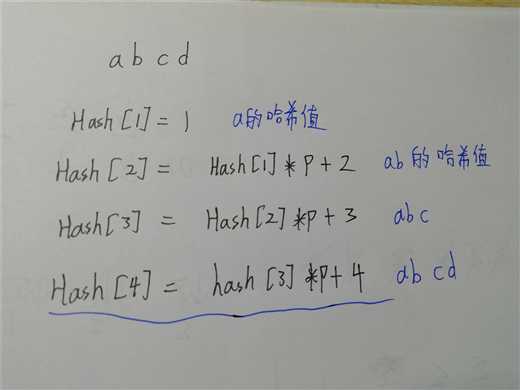 a b c d
Hash[1] = 1 a的哈希值
Hash[2] = Hash[1]*P+2 ab的哈希值
Hash[3] = Hash[2]*P+3 abc
Hash[4] = hash[3]*P+4 abcd